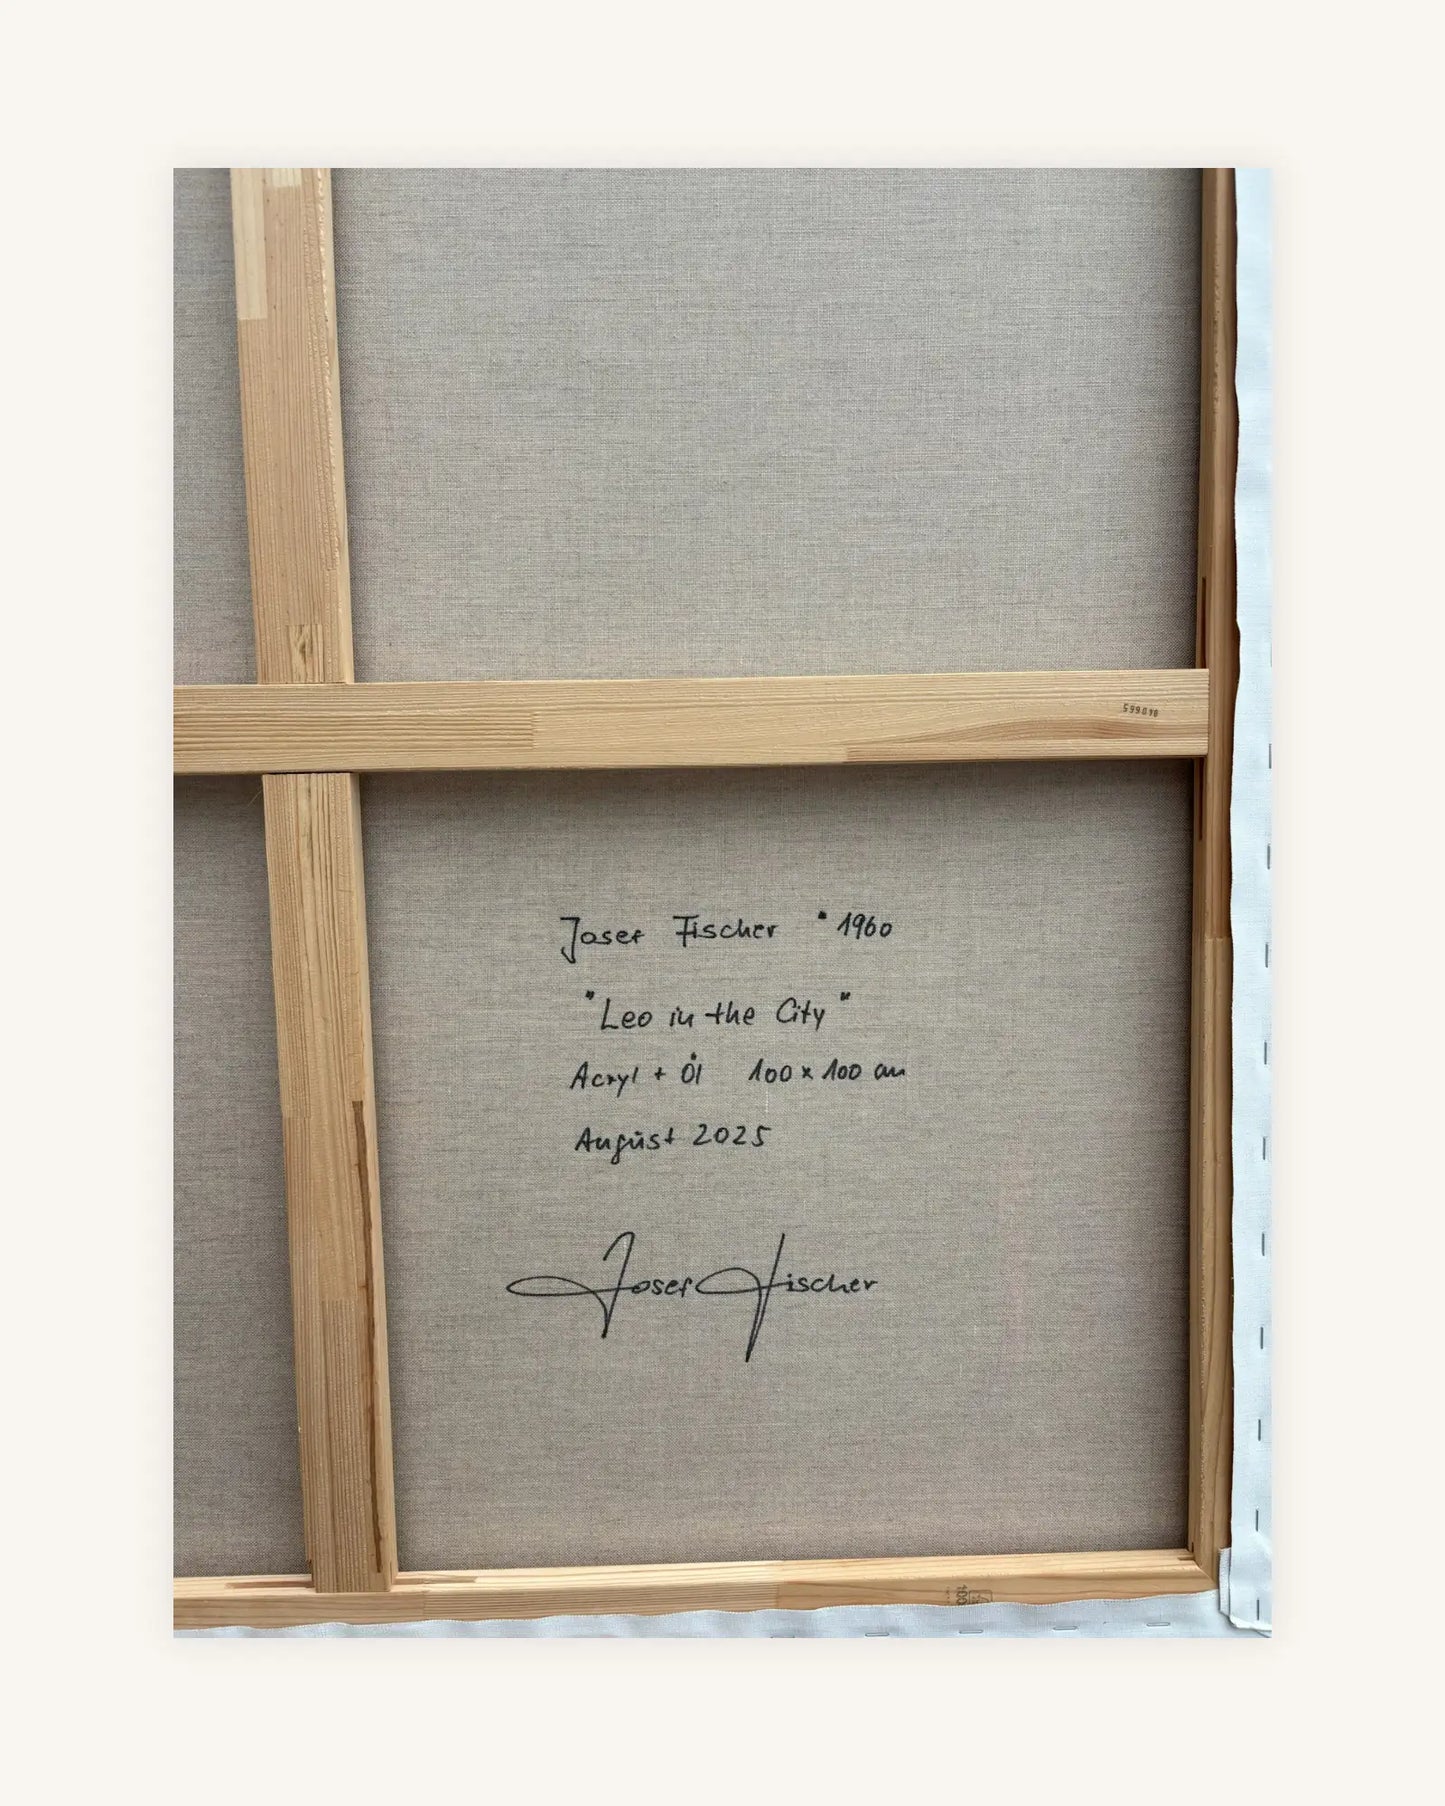 599098
Josef Fischer *1960
"Leo in the City"
Acryl + Öl 100 x 100 cm
August 2025
Josef Fischer
100